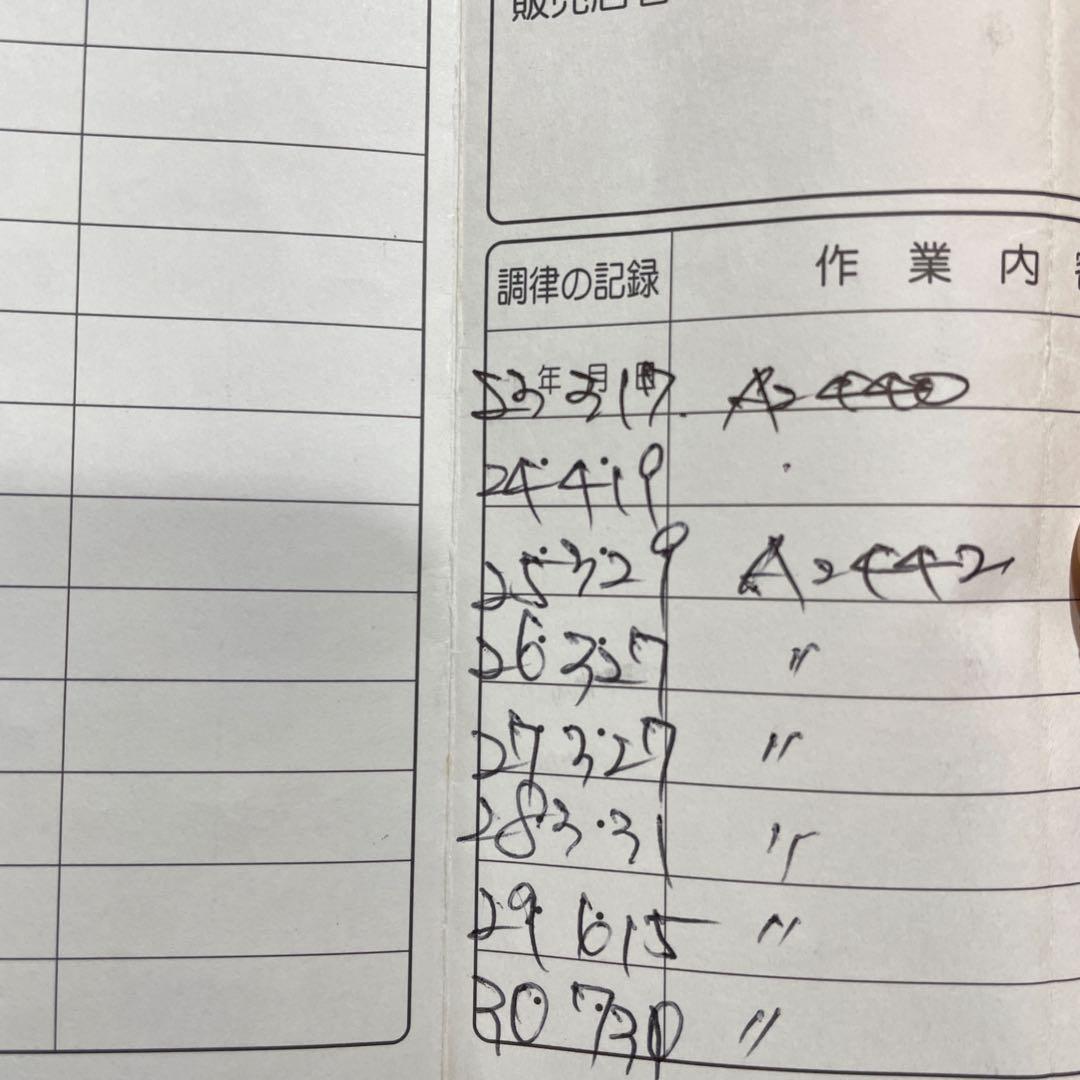 販売店名
調律の記録 作業内容
年 月 日
53 3 17. A=440
24・4・19
25・3・29 A=442
26・3・27 〃
27・3・27 〃
28 3・31 〃
29・6・15 〃
30・7・30 〃